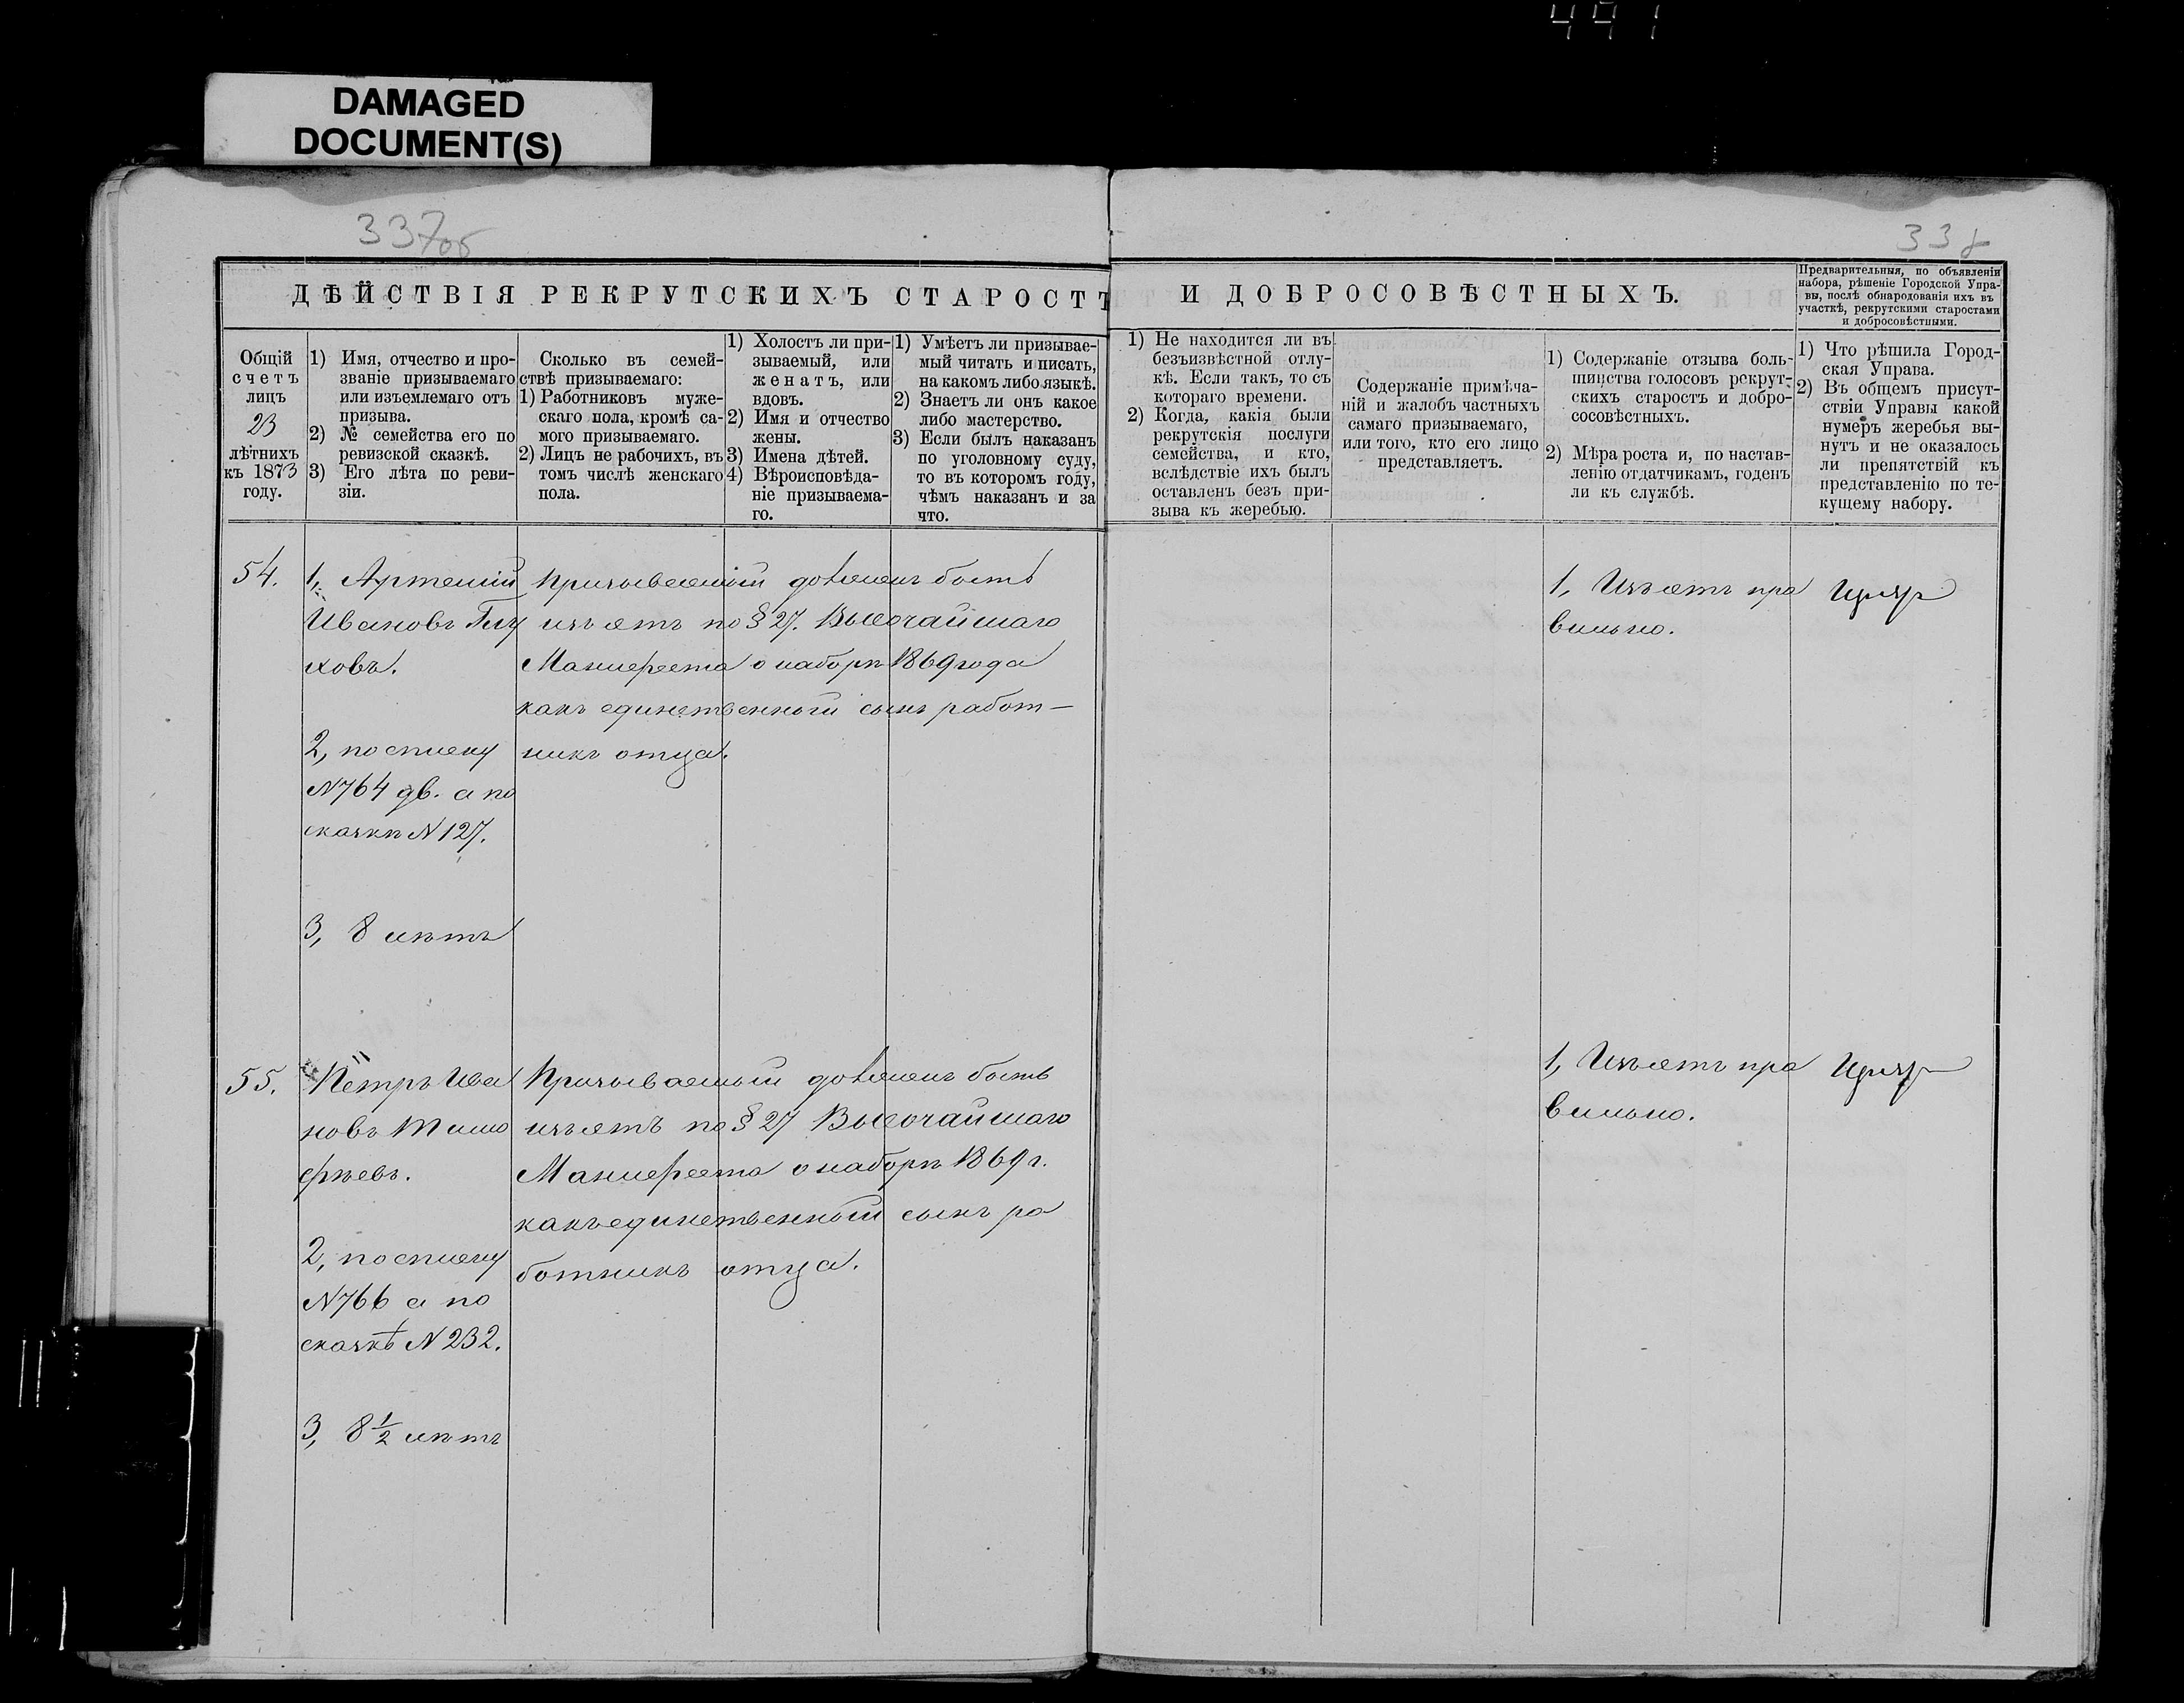 441
DAMAGED
DOCUMENT(S)
337об
338
ДѢЙСТВІЯ РЕКРУТСКИХЪ СТАРОСТЪ И ДОБРОСОВѢСТНЫХЪ.
Предварительныя, по объявленіи
набора, рѣшеніе Городской Упра-
вы, послѣ обнародованія ихъ въ
участкѣ, рекрутскими старостами
и добросовѣстными.
Общій
счетъ
лицъ
23
лѣтнихъ
къ 1873
году.
1) Имя, отчество и про-
званіе призываемаго
или изъемлемаго отъ
призыва.
2) № семейства его по
ревизской сказкѣ.
3) Его лѣта по реви-
зіи.
Сколько въ семей-
ствѣ призываемаго:
1) Работниковъ муже-
скаго пола, кромѣ са-
мого призываемаго.
2) Лицъ не рабочихъ, въ
томъ числѣ женскаго
пола.
1) Холостъ ли при-
зываемый, или
женатъ, или
вдовъ.
2) Имя и отчество
жены.
3) Имена дѣтей.
4) Вѣроисповѣда-
ніе призываема-
го.
1) Умѣетъ ли призывае-
мый читать и писать,
на какомъ либо языкѣ.
2) Знаетъ ли онъ какое
либо мастерство.
3) Если былъ наказанъ
по уголовному суду,
то въ которомъ году,
чѣмъ наказанъ и за
что.
1) Не находится ли въ
безъизвѣстной отлу-
кѣ. Если такъ, то съ
котораго времени.
2) Когда, какія были
рекрутскія послуги
семейства, и кто,
вслѣдствіе ихъ былъ
оставленъ безъ при-
зыва къ жеребью.
Содержаніе примѣча-
ній и жалобъ частныхъ
самаго призываемаго,
или того, кто его лицо
представляетъ.
1) Содержаніе отзыва боль-
шинства голосовъ рекрут-
скихъ старостъ и добро-
сосовѣстныхъ.
2) Мѣра роста и, по настав-
ленію отдатчикамъ, годенъ
ли къ службѣ.
1) Что рѣшила Город-
ская Управа.
2) Въ общемъ присут-
ствіи Управы какой
нумеръ жеребья вы-
нутъ и не оказалось
ли препятствій къ
представленію по те-
кущему набору.
54.
1, Артемій
Ивановъ Глу
ховъ.
2, по списку
N 764 дв. а по
сказкѣ N 127.
3, 8 лѣтъ
Призываемый долженъ быть
изъятъ по § 27. Высочайшаго
Манифеста о наборѣ 1869 года
какъ единственный сынъ работ—
никъ отца.
1, Изъятъ пра
вильно.
55.
Пётръ Ива
новъ Тимо
фѣевъ.
2, по списку
N 766 а по
сказкѣ N 232.
3, 8 1/2 лѣтъ
Призываемый долженъ быть
изъятъ по § 27 Высочайшаго
Манифеста о наборѣ 1869 г.
какъ единственный сынъ ра
ботникъ отца.
1, Изъятъ пра
вильно.